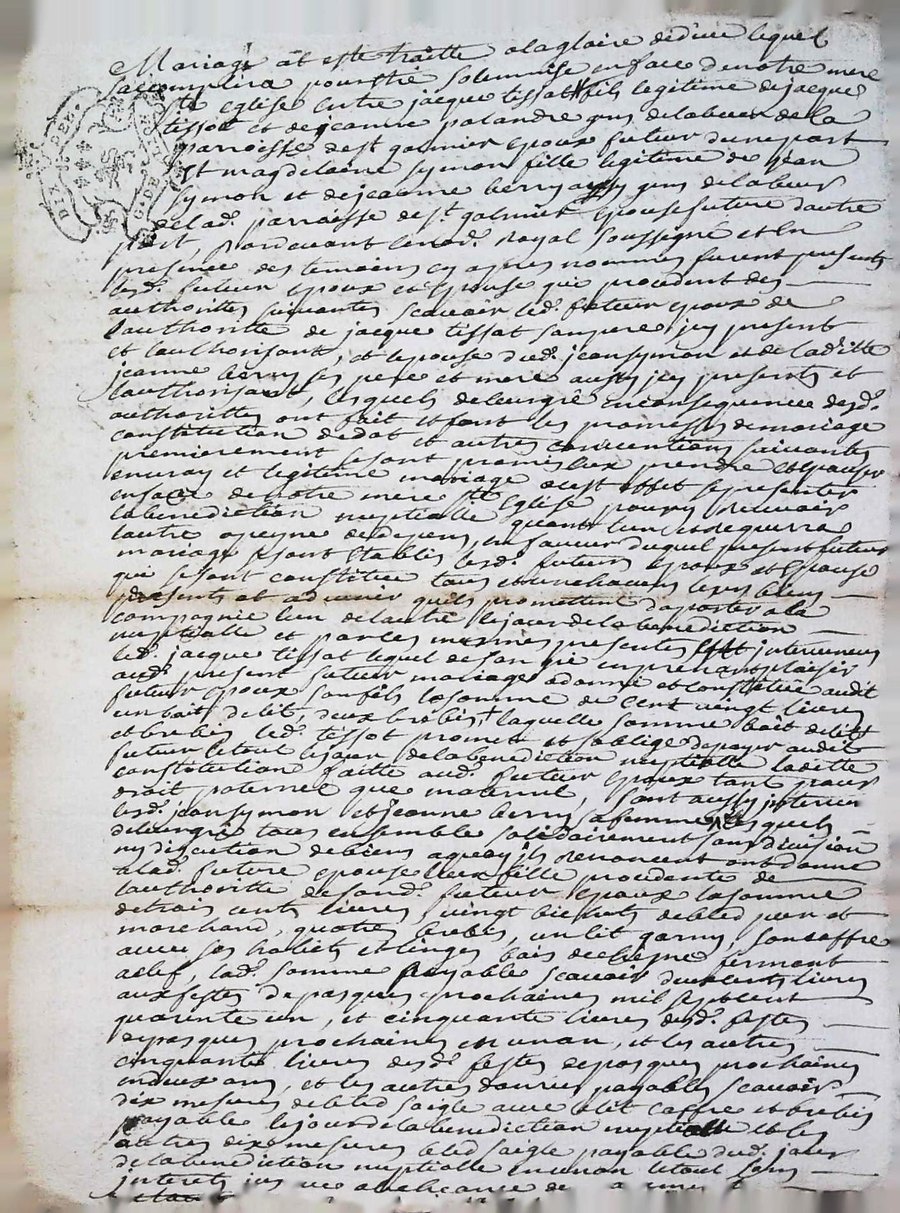 Mariage at este traitte alagloire dedieu lequel
saccomplira pourestre solemnise enface denotre mere
ste eglise entre jacque tissot fils legitime dejacque
tissot et dejeanne palandre gens delabeur dela
parroesse de st galmier epoux futeur dunepart
Et magdelaine symon fille legitime de jean
symon et dejeanne berry aussy gens delabeur
delad. parroesse de st galmier Epousefuture dautre
part, pardavant lenoe. Royal soussigné et en
presence des temoins cy apres nommes furent presents
lesd. futeur epoux et Epouse qui procedent des
authorittes suivantes scavoir led. futeur epoux de
lauthoritte de jacque tissot sonpere, jcy present
et lauthorisant, et lepouse dud. jeansymon et de ladette
jeanne berry ses pere et mere aussy jcy presents et
lauthorisant, lesquels deleurgré enconsequence desd.
authorittes ont fait et font les promesses demariage
constitution dedot et autres conventions suivantes
premierement sesont promis eux prendre et Epouser
envray et legitime mariage acest effet sepresenter
enface denotre mere ste Eglise pour y recevoir
labenediction nuptialle quant lun enrequerra
lautre apeyne dedepens, enfaveur duquel present futeur
mariage sesont etablis lesd. futeurs epoux et Epouse
qui sesont constitue tous et unchacuns leurs biens
presents et advenir quils promettent daporter ala
compagnie lun delautre lejourdelabenediction
nuptialle et parces mesmes presentes est intervenu
led. jacque tissot lequel deson gré enprenant plaisir
aud. present futeur mariage adonné et constitué audit
futeur epoux sonfils lasomme de cent vingt livres
un bait delit, deux brebis, laquelle somme bait delit
et brebis led. tissot promet et soblige depayer audit
futeur letout lejour delabenediction nuptialle ladite
constitution faitte aud. futeur epoux tant pour
droit paternel que maternel, sont aussy interven
lesd. jeansymon et jeanne berry safemme lesquels
deleurgré tous ensemble solidairement sans division
ny discution debiens aquoy jls renoncent ont donné
alad. future epouse leur fille procedente de
lauthoritte desond. futeur epoux lasomme
detrois cents livres, vingt bichets debled pur et
marchand, quatres brebis, un lit garny, son coffre
avec ses habits et linges bois dechesne fermant
aclef, lad. somme payable scavoir deuxcents livres
auxfestes depasques prochaines mil septcent
quarente un, et cinquante livres desd. festes
depasques prochaines enunan, et les autres
cinquante livres desd. festes depasques prochaines
endeux ans, et les autres denrées payables scavoir
dix mesures debled saigle avec lelit coffre et brebis
payable lejourdelabenediction nuptialle et les
autres dix mesures bled saigle payable dud. jour
delabenediction nuptialle enunan letout sans
interets